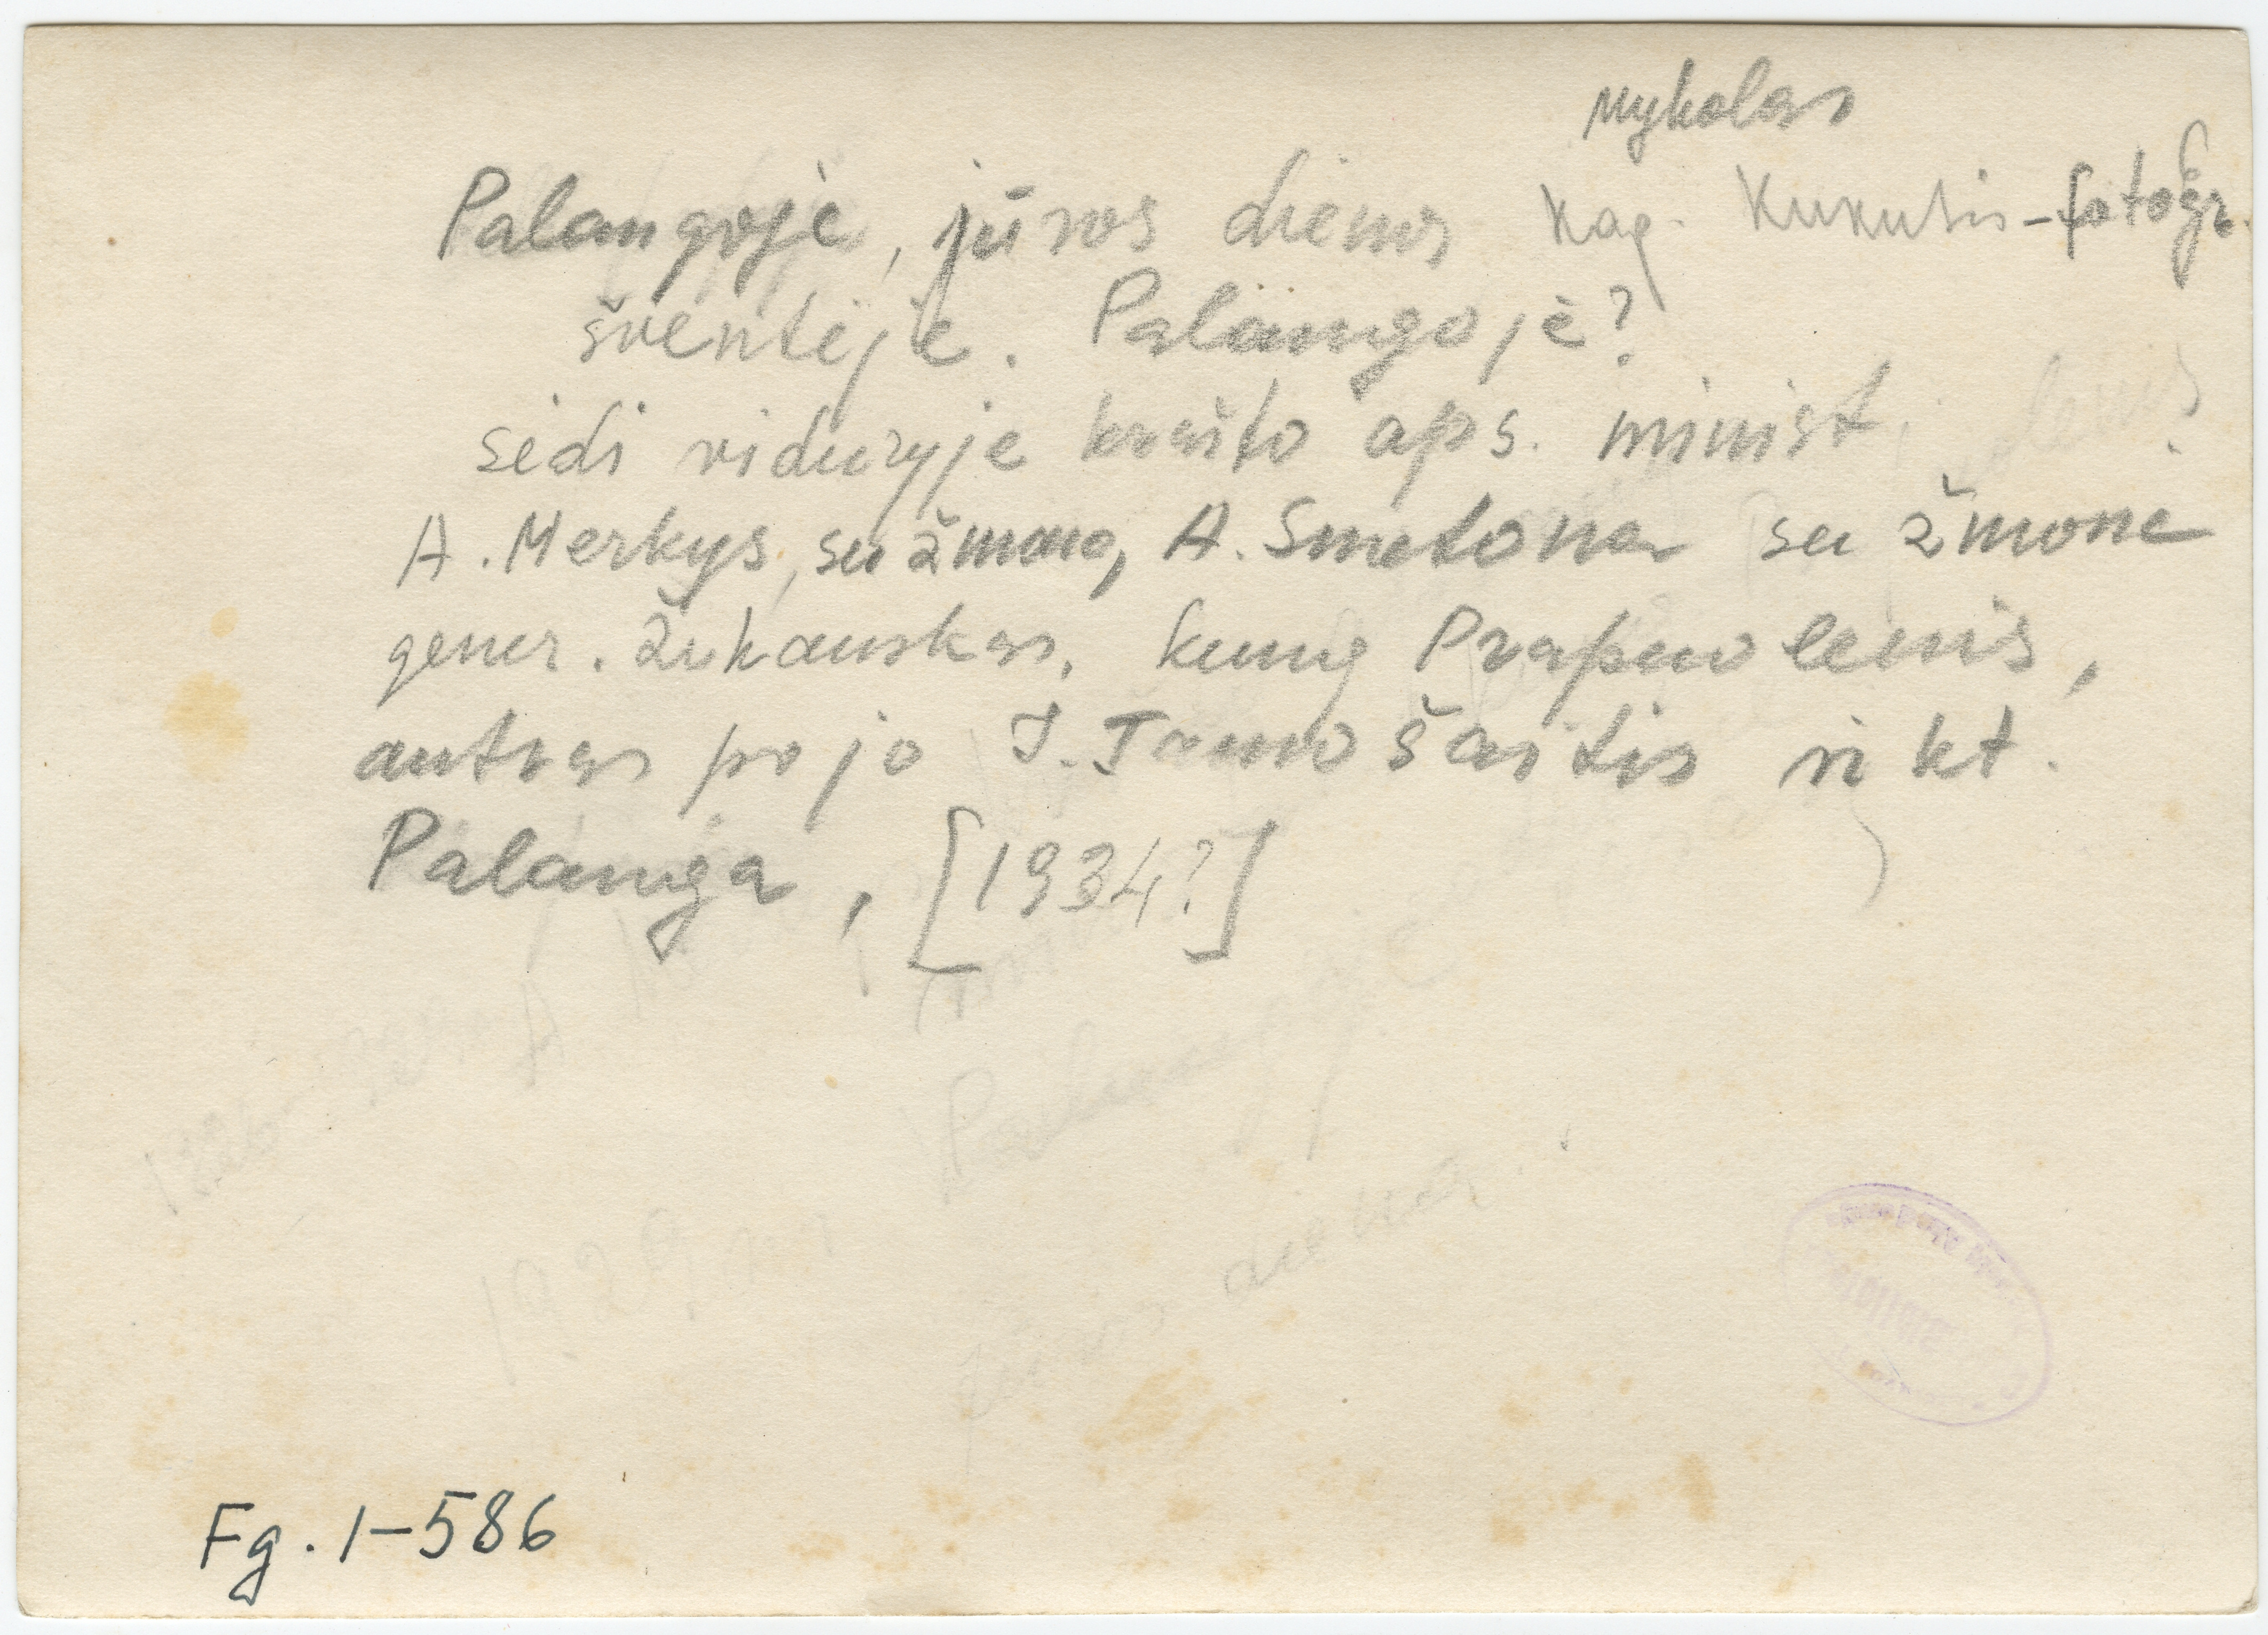 Mykolas
Palangoje, jūros dienos Kag. Kukutis - fotogr.
šventėje. Palangoje?
sėdi viduryje krašto aps. minist.
A. Merkys, su žmona, A. Smetona su žmona
gener. Žukauskas, kung Prapuolenis,
antras po jo J. Tamošaitis ir kt.
Palanga, [1934?]
Palangoje
jūros diena
Fg. 1-586